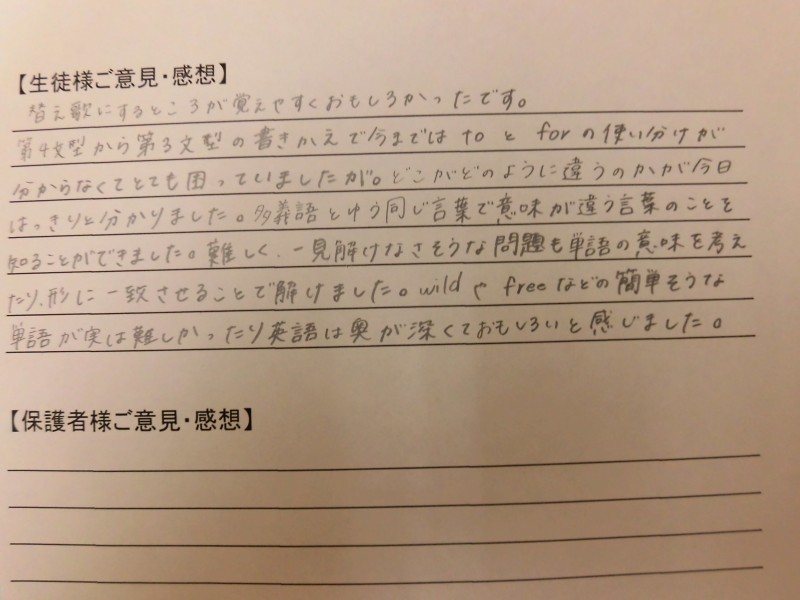 【生徒様ご意見・感想】
替え歌にするところが覚えやすくおもしろかったです。
第4文型から第3文型の書きかえで今までは to と for の使い分けが
分からなくてとても困っていましたが。どこがどのように違うのかが今日
はっきりと分かりました。多義語とゆう同じ言葉で意味が違う言葉のことを
知ることができました。難しく、一見解けなさそうな問題も単語の意味を考え
たり、形に一致させることで解けました。wild や free などの簡単そうな
単語が実は難しかったり英語は奥が深くておもしろいと感じました。
【保護者様ご意見・感想】